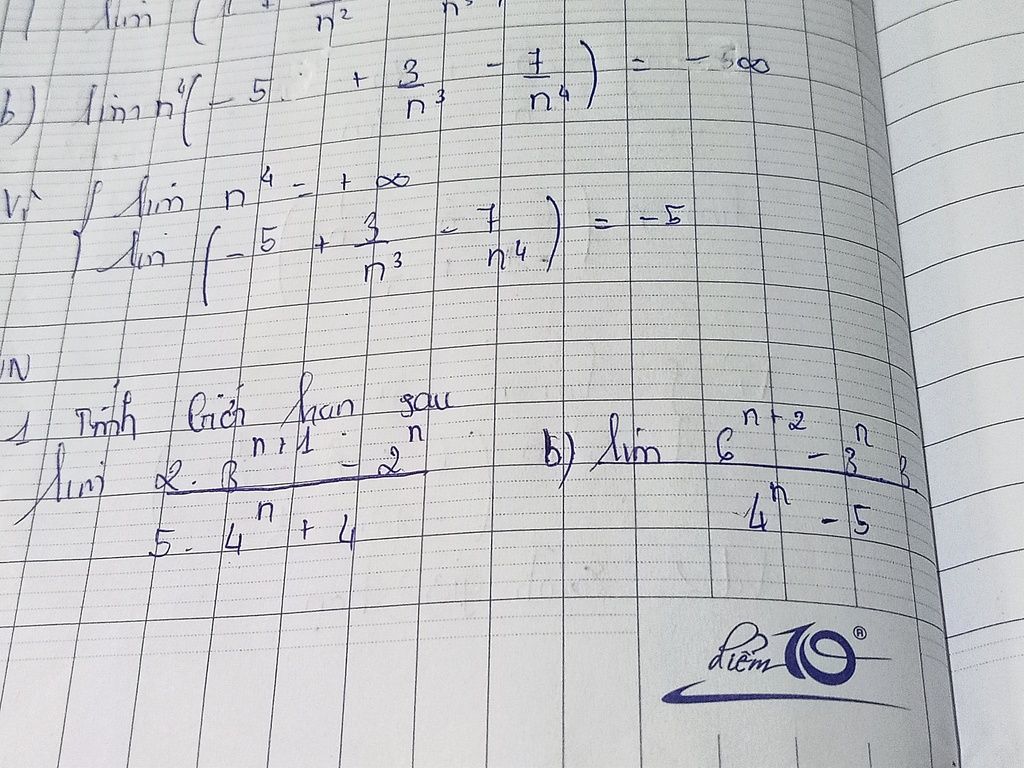 lim ( n² n³
b) lim n⁴(-5 + 3/n³ - 7/n⁴) = -∞
Vì { lim n⁴ = +∞
lim (-5 + 3/n³ - 7/n⁴) = -5
VN
1 Tính Giới hạn sau
lim (2.3ⁿ⁺¹ - 2ⁿ)/(5.4ⁿ + 4) b) lim (6ⁿ⁺² - 3ⁿ 3)/(4ⁿ - 5)
điểm 10®